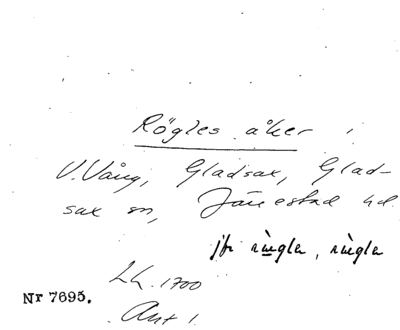 Rögles åker i
V. Vång, Gladsax, Glad-
sax sn, Järrestad hd.
jfr ringla, ringla
Lh. 1700
Akt 1.
Nr 7695.